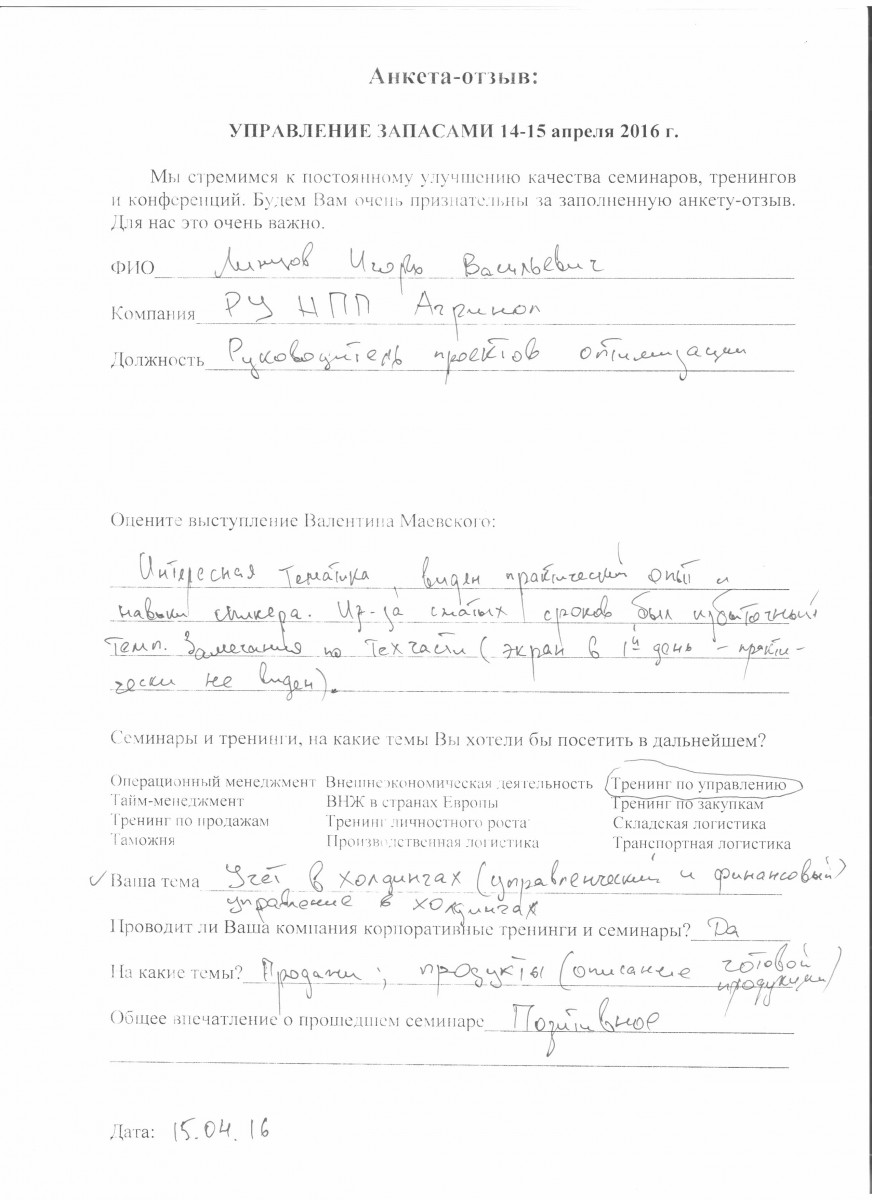 Анкета-отзыв:
УПРАВЛЕНИЕ ЗАПАСАМИ 14-15 апреля 2016 г.
Мы стремимся к постоянному улучшению качества семинаров, тренингов
и конференций. Будем Вам очень признательны за заполненную анкету-отзыв.
Для нас это очень важно.
ФИО Игорь Васильевич
Компания РУ НПП Агринол
Должность Руководитель проектов оптимизации
Оцените выступление Валентина Маевского:
Интересная тематика, виден практический опыт и
навыки спикера. Из-за сжатых сроков был избыточный
темп. Замечания по техчасти (экран в 1й день - практи-
чески не виден).
Семинары и тренинги, на какие темы Вы хотели бы посетить в дальнейшем?
Операционный менеджмент Внешнеэкономическая деятельность Тренинг по управлению
Тайм-менеджмент ВНЖ в странах Европы Тренинг по закупкам
Тренинг по продажам Тренинг личностного роста Складская логистика
Таможня Производственная логистика Транспортная логистика
✓ Ваша тема Учёт в холдингах (управленческий и финансовый)
управление в холдингах
Проводит ли Ваша компания корпоративные тренинги и семинары? Да
На какие темы? Продажи; продукты (описание готовой
продукции)
Общее впечатление о прошедшем семинаре Позитивное
Дата: 15.04.16